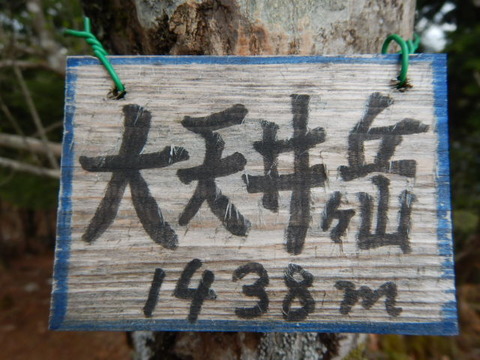 大天井ヶ岳
1438m